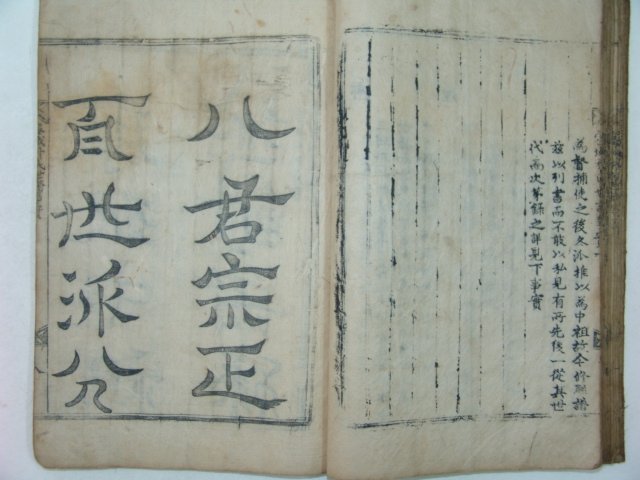 為督捕使之後各派推以為中祖故今修譜
玆以列書而不敢以私見有所先後一從其世
代為次第錄之詳見下事實
八君宗正
百世派分